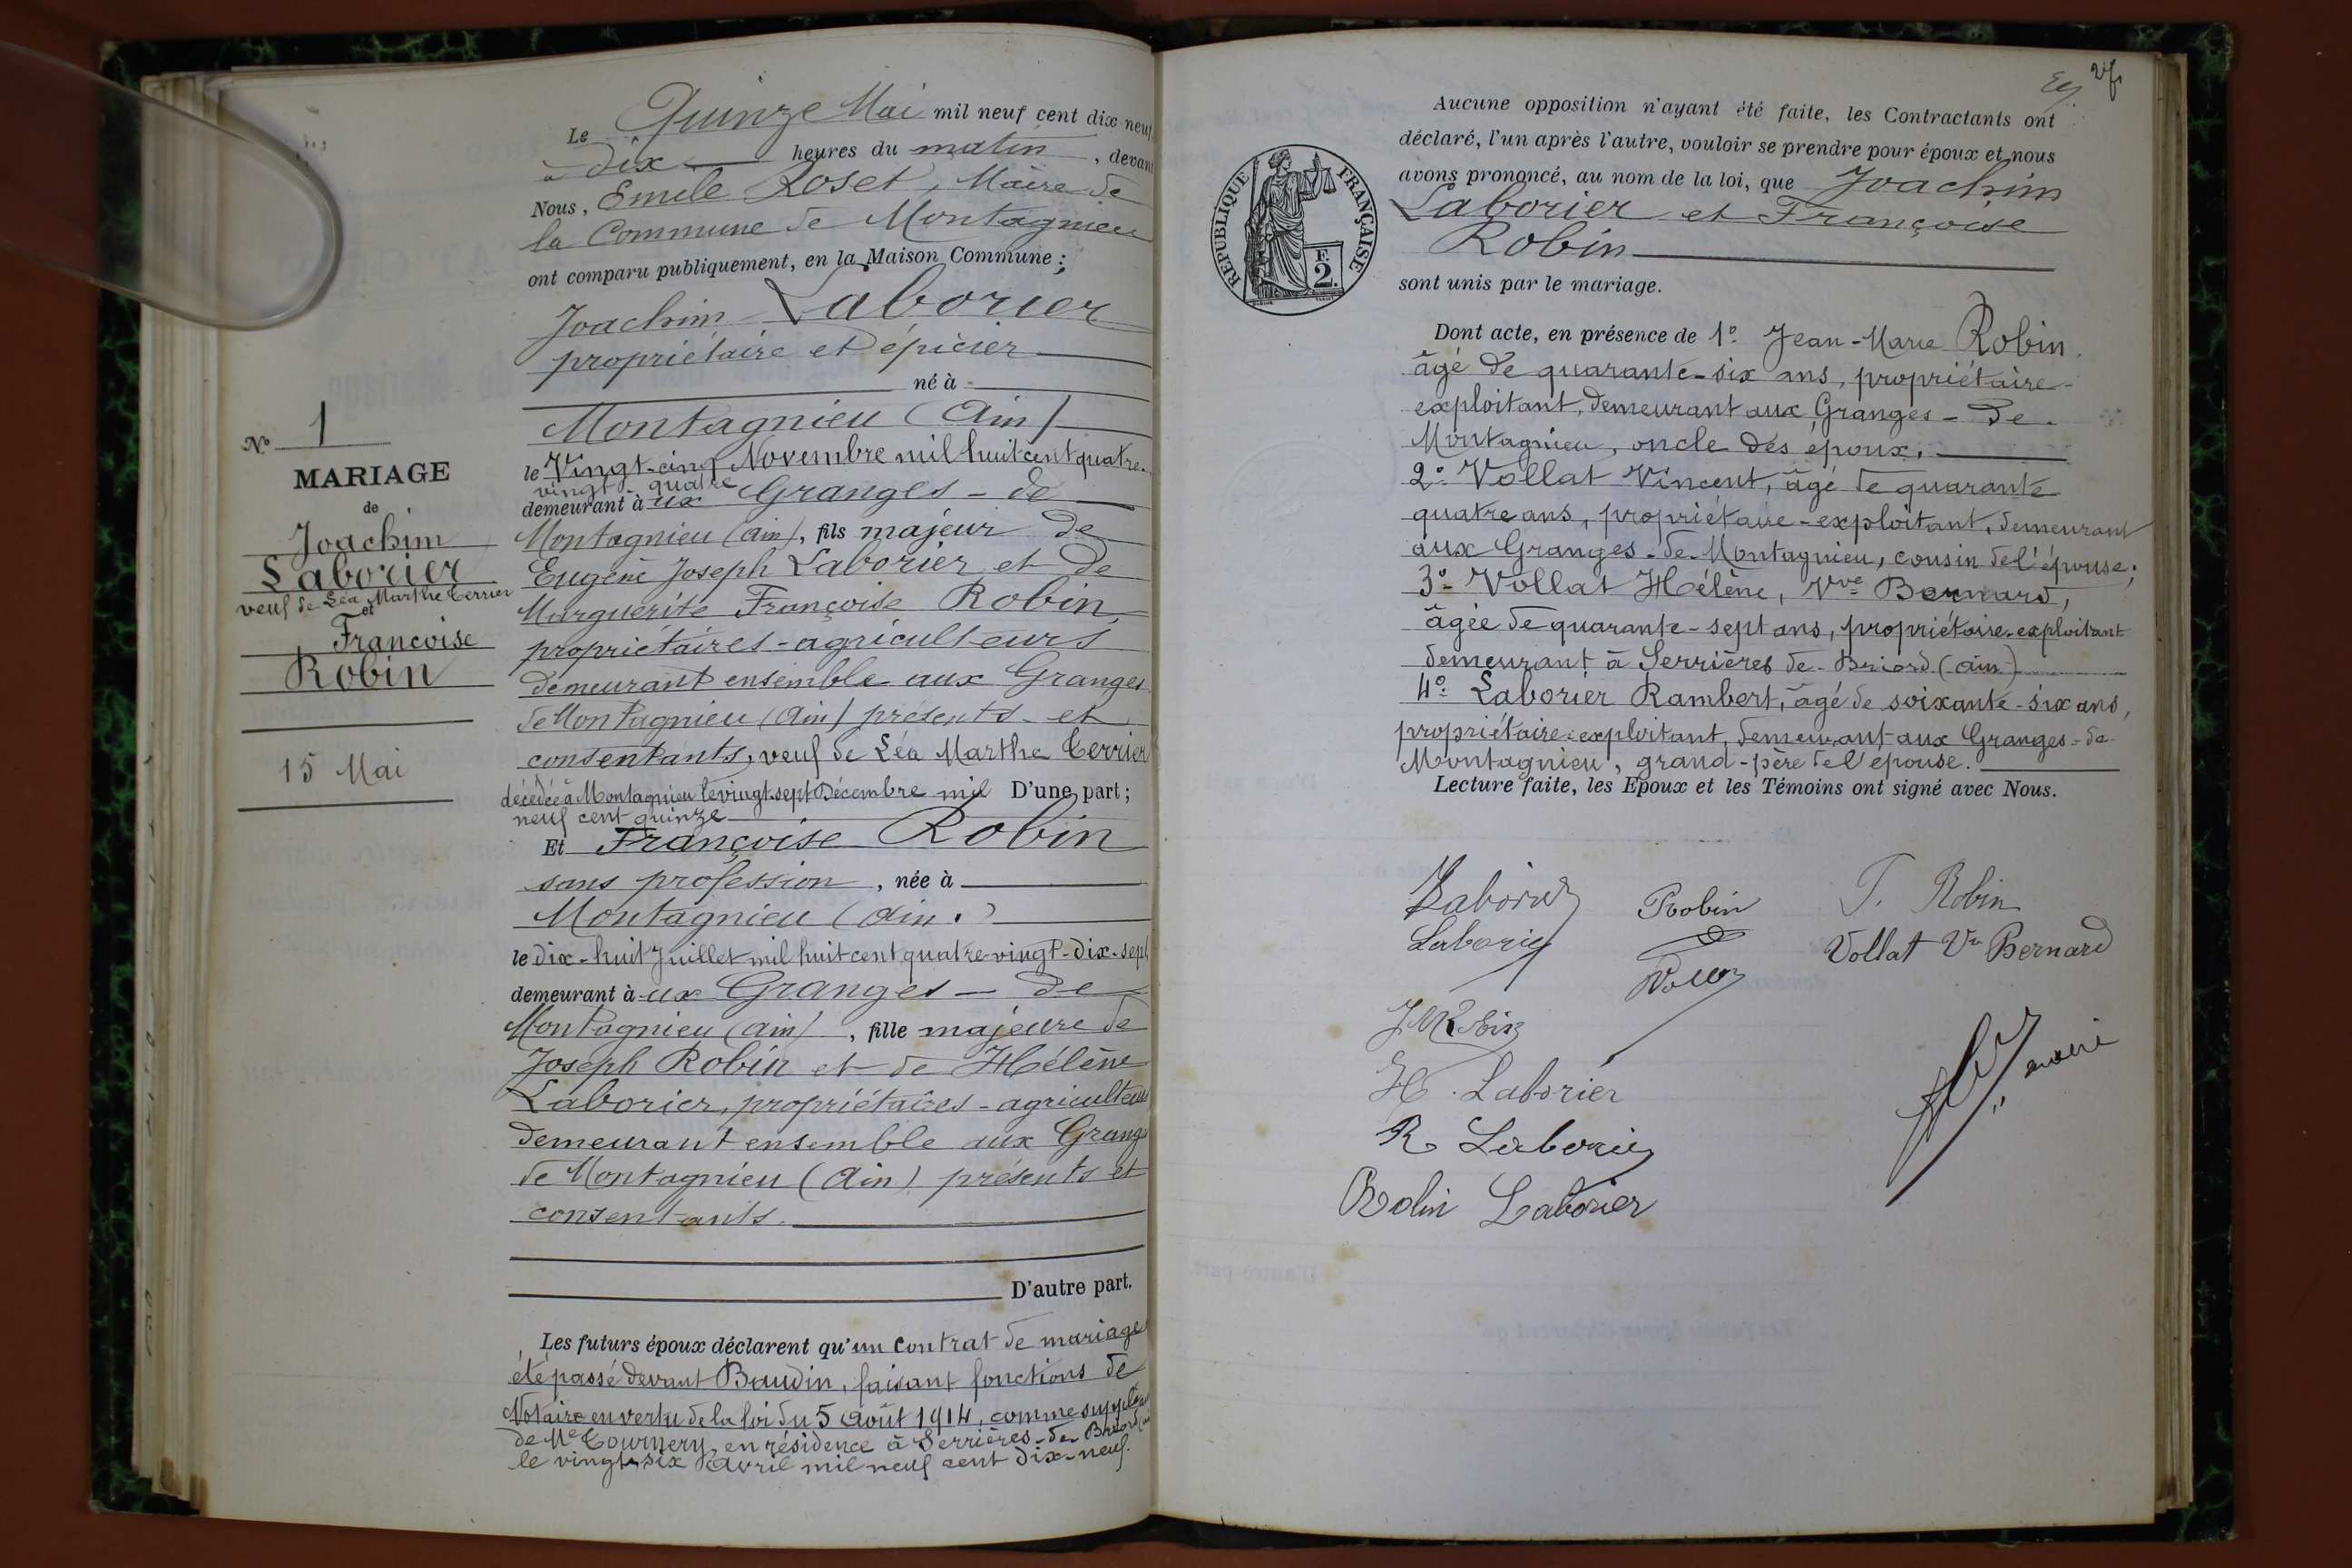 Le Quinze Mai mil neuf cent dix neuf
à dix heures du matin, devant
Nous, Emile Roset, Maire de
la Commune de Montagnieu
ont comparu publiquement, en la Maison Commune :
Joachim Laborier
propriétaire et épicier
né à
Montagnieu (Ain)
le Vingt-cinq Novembre mil huit cent quatre-
vingt-quatre
demeurant à ux Granges-de
Montagnieu (Ain), fils majeur de
Eugène Joseph Laborier et de
Marguerite Françoise Robin,
propriétaires-agriculteurs
demeurant ensemble aux Granges
de Montagnieu (Ain) présents et
consentants, veuf de Léa Marthe Terrier
décédée à Montagnieu le vingt-sept Décembre mil D'une part ;
neuf cent quinze
Et Françoise Robin
sans profession, née à
Montagnieu (Ain.)
le dix-huit Juillet mil huit cent quatre-vingt-dix-sept
demeurant à ux Granges-de
Montagnieu (Ain), fille majeure de
Joseph Robin et de Hélène
Laborier, propriétaires-agriculteurs
demeurant ensemble aux Granges
de Montagnieu (Ain) présents et
consentants.
D'autre part.
Les futurs époux déclarent qu'un contrat de mariage
été passé devant Baudin, faisant fonctions de
Notaire en vertu de la loi du 5 Août 1914, comme suppléant
de Me Tournery, en résidence à Serrières-de Briord
le vingt-six Avril mil neuf cent dix-neuf.
No 1
MARIAGE
de
Joachim
Laborier
veuf de Léa Marthe Terrier
et
Françoise
Robin
15 Mai
RÉPUBLIQUE FRANÇAISE
F.
2.
Aucune opposition n'ayant été faite, les Contractants ont
déclaré, l'un après l'autre, vouloir se prendre pour époux et nous
avons prononcé, au nom de la loi, que Joachim
Laborier et Françoise
Robin
sont unis par le mariage.
Dont acte, en présence de 1° Jean-Marie Robin
âgé de quarante-six ans, propriétaire-
exploitant, demeurant aux Granges-de-
Montagnieu, oncle des époux.
2° Vollat Vincent, âgé de quarante
quatre ans, propriétaire-exploitant, demeurant
aux Granges-de-Montagnieu, cousin de l'épouse ;
3° Vollat Hélène, Vve Bernard,
âgée de quarante-sept ans, propriétaire-exploitant
demeurant à Serrières de-Briord (Ain)
4° Laborier Rambert, âgé de soixante-six ans,
propriétaire-exploitant, demeurant aux Granges-de-
Montagnieu, grand-père de l'épouse.
Lecture faite, les Epoux et les Témoins ont signé avec Nous.
Laborier Robin F. Robin
Laborier Vollat Vve Bernard
J M Robin
H. Laborier
R Laborier
Robin Laborier